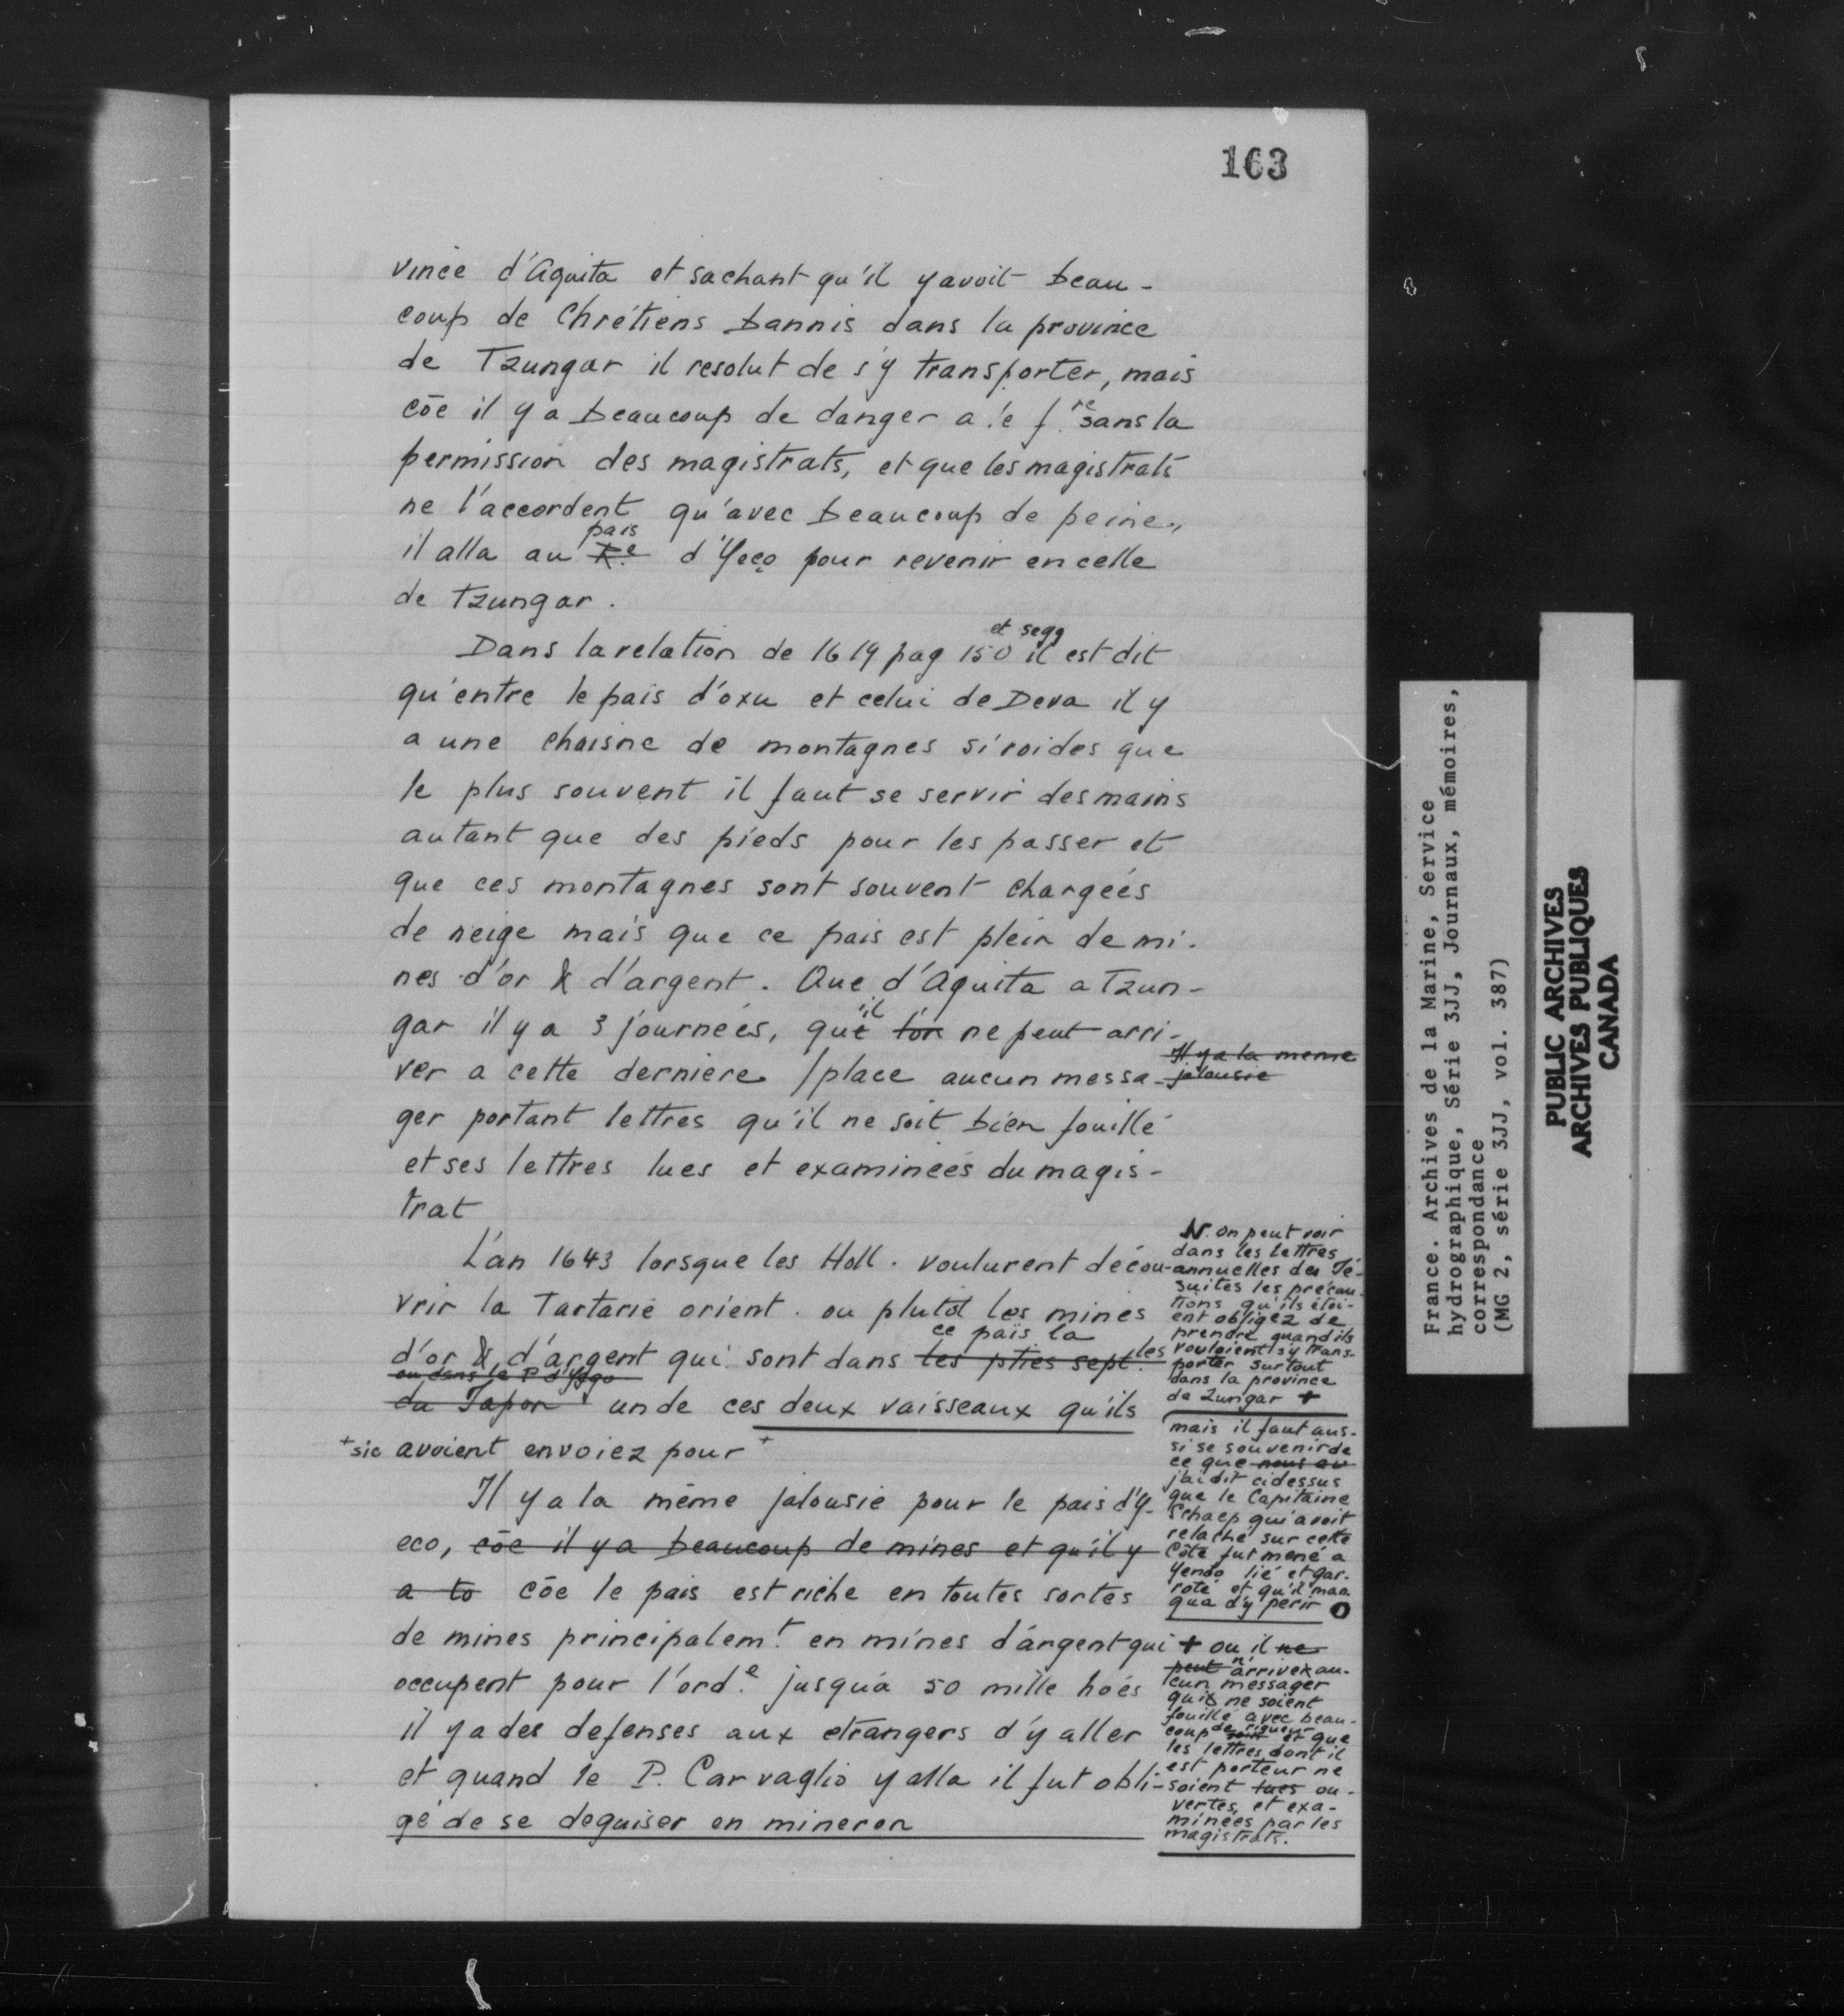 163
vince d'Aquita et sachant qu'il y avoit beau-
coup de Chrétiens bannis dans la province
de Tzungar il resolut de s'y transporter, mais
cõe il y a beaucoup de danger a le f.re sans la
permission des magistrats, et que les magistrats
ne l'accordent qu'avec beaucoup de peine,
pais
il alla au R.e d'Yeço pour revenir en celle
de Tzungar.
et seqq
Dans la relation de 1619 pag 150 il est dit
qu'entre le païs d'oxu et celui de Deva il y
a une chaisne de montagnes si roides que
le plus souvent il faut se servir des mains
autant que des pieds pour les passer et
que ces montagnes sont souvent chargées
de neige mais que ce pais est plein de mi-
nes d'or & d'argent. Que d'Aquita a Tzun-
il
gar il y a 3 journées, que l'on ne peut arri-
ver a cette derniere /place aucun messa-
ger portant lettres qu'il ne soit bien fouillé
et ses lettres lues et examinées du magis-
trat
L'an 1643 lorsque les Holl. voulurent décou-
vrir la Tartarie orient. ou plutôt les mines
ce païs la
d'or & d'argent qui sont dans les pties sept. les
ou dans le P d'Yego
du Japon un de ces deux vaisseaux qu'ils
+sic avoient envoiez pour +
Il y a la même jalousie pour le pais d'Y-
eco, cõe il y a beaucoup de mines et qu'il y
a to cõe le pais est riche en toutes sortes
de mines principalem.t en mines d'argent qui
occupent pour l'ord.e jusqu'a 50 mille hões
il y a des defenses aux etrangers d'y aller
et quand le P. Carvaglio y alla il fut obli-
gé de se deguiser en mineron
Il y a la meme
jalousie
N. on peut voir
dans les lettres
annuelles des Jé-
suites les précau-
tions qu'ils étoi-
ent obligez de
prendre quand ils
vouloient s'y trans-
porter surtout
dans la province
de Zungar +
mais il faut aus-
si se souvenir de
ce que nous av
j'ai dit cidessus
que le Capitaine
Schaep qui avoit
relaché sur cette
Côte fut mené a
Yendo lié et gar-
roté et qu'il man
qua d'y perir O
+ ou il ne
peut n'arriver au-
cun messager
qui ne soient
fouillé avec beau-
coup de rigueur et que
les lettres dont il
est porteur ne
soient lues ou-
vertes, et exa-
minées par les
magistrats.
France. Archives de la Marine, Service
hydrographique, Série 3JJ, Journaux, mémoires,
correspondance
(MG 2, série 3JJ, vol. 387)
PUBLIC ARCHIVES
ARCHIVES PUBLIQUES
CANADA